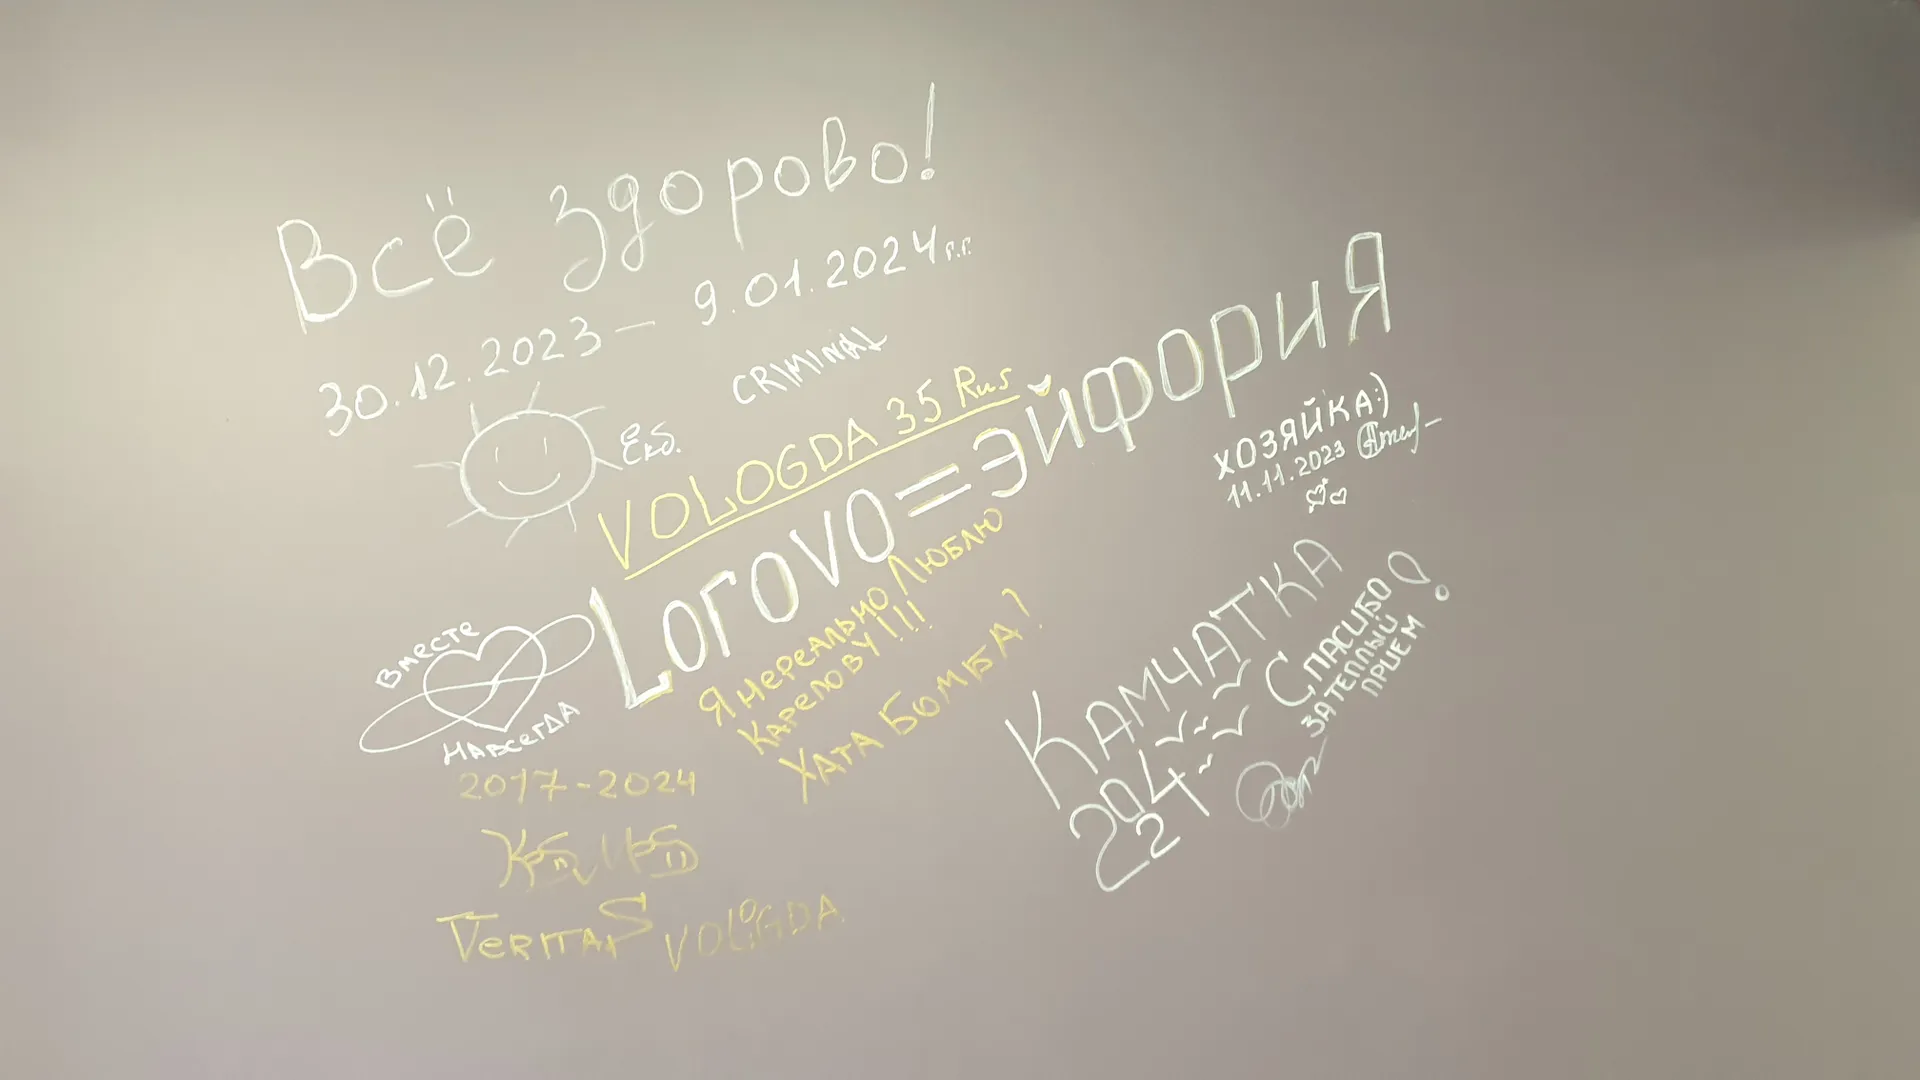 Всё здорово!
30.12.2023 — 9.01.2024 г.г.
Екб.
CRIMINAL
VOLOGDA 35 Rus
LOГOVO = ЭЙФОРИЯ
ХОЗЯЙКА :)
11.11.2023
Я НЕРЕАЛЬНО ЛЮБЛЮ
КАРЕЛОВУ!!!
ХАТА БОМБА!
ВМЕСТЕ
НАВСЕГДА
2017-2024
VERITAS VOLOGDA
КАМЧАТКА
2024
СПАСИБО
ЗА ТЕПЛЫЙ
ПРИЕМ!